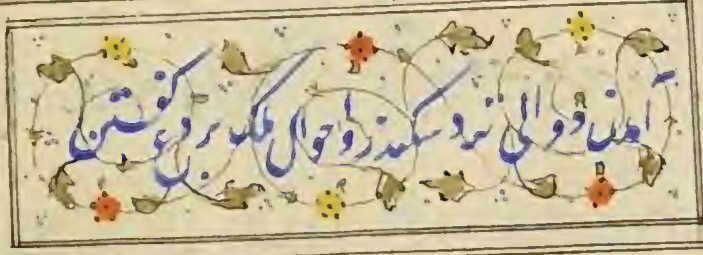 آمدن دوالی نزد سکندر و احوال ملک بردع گفتن